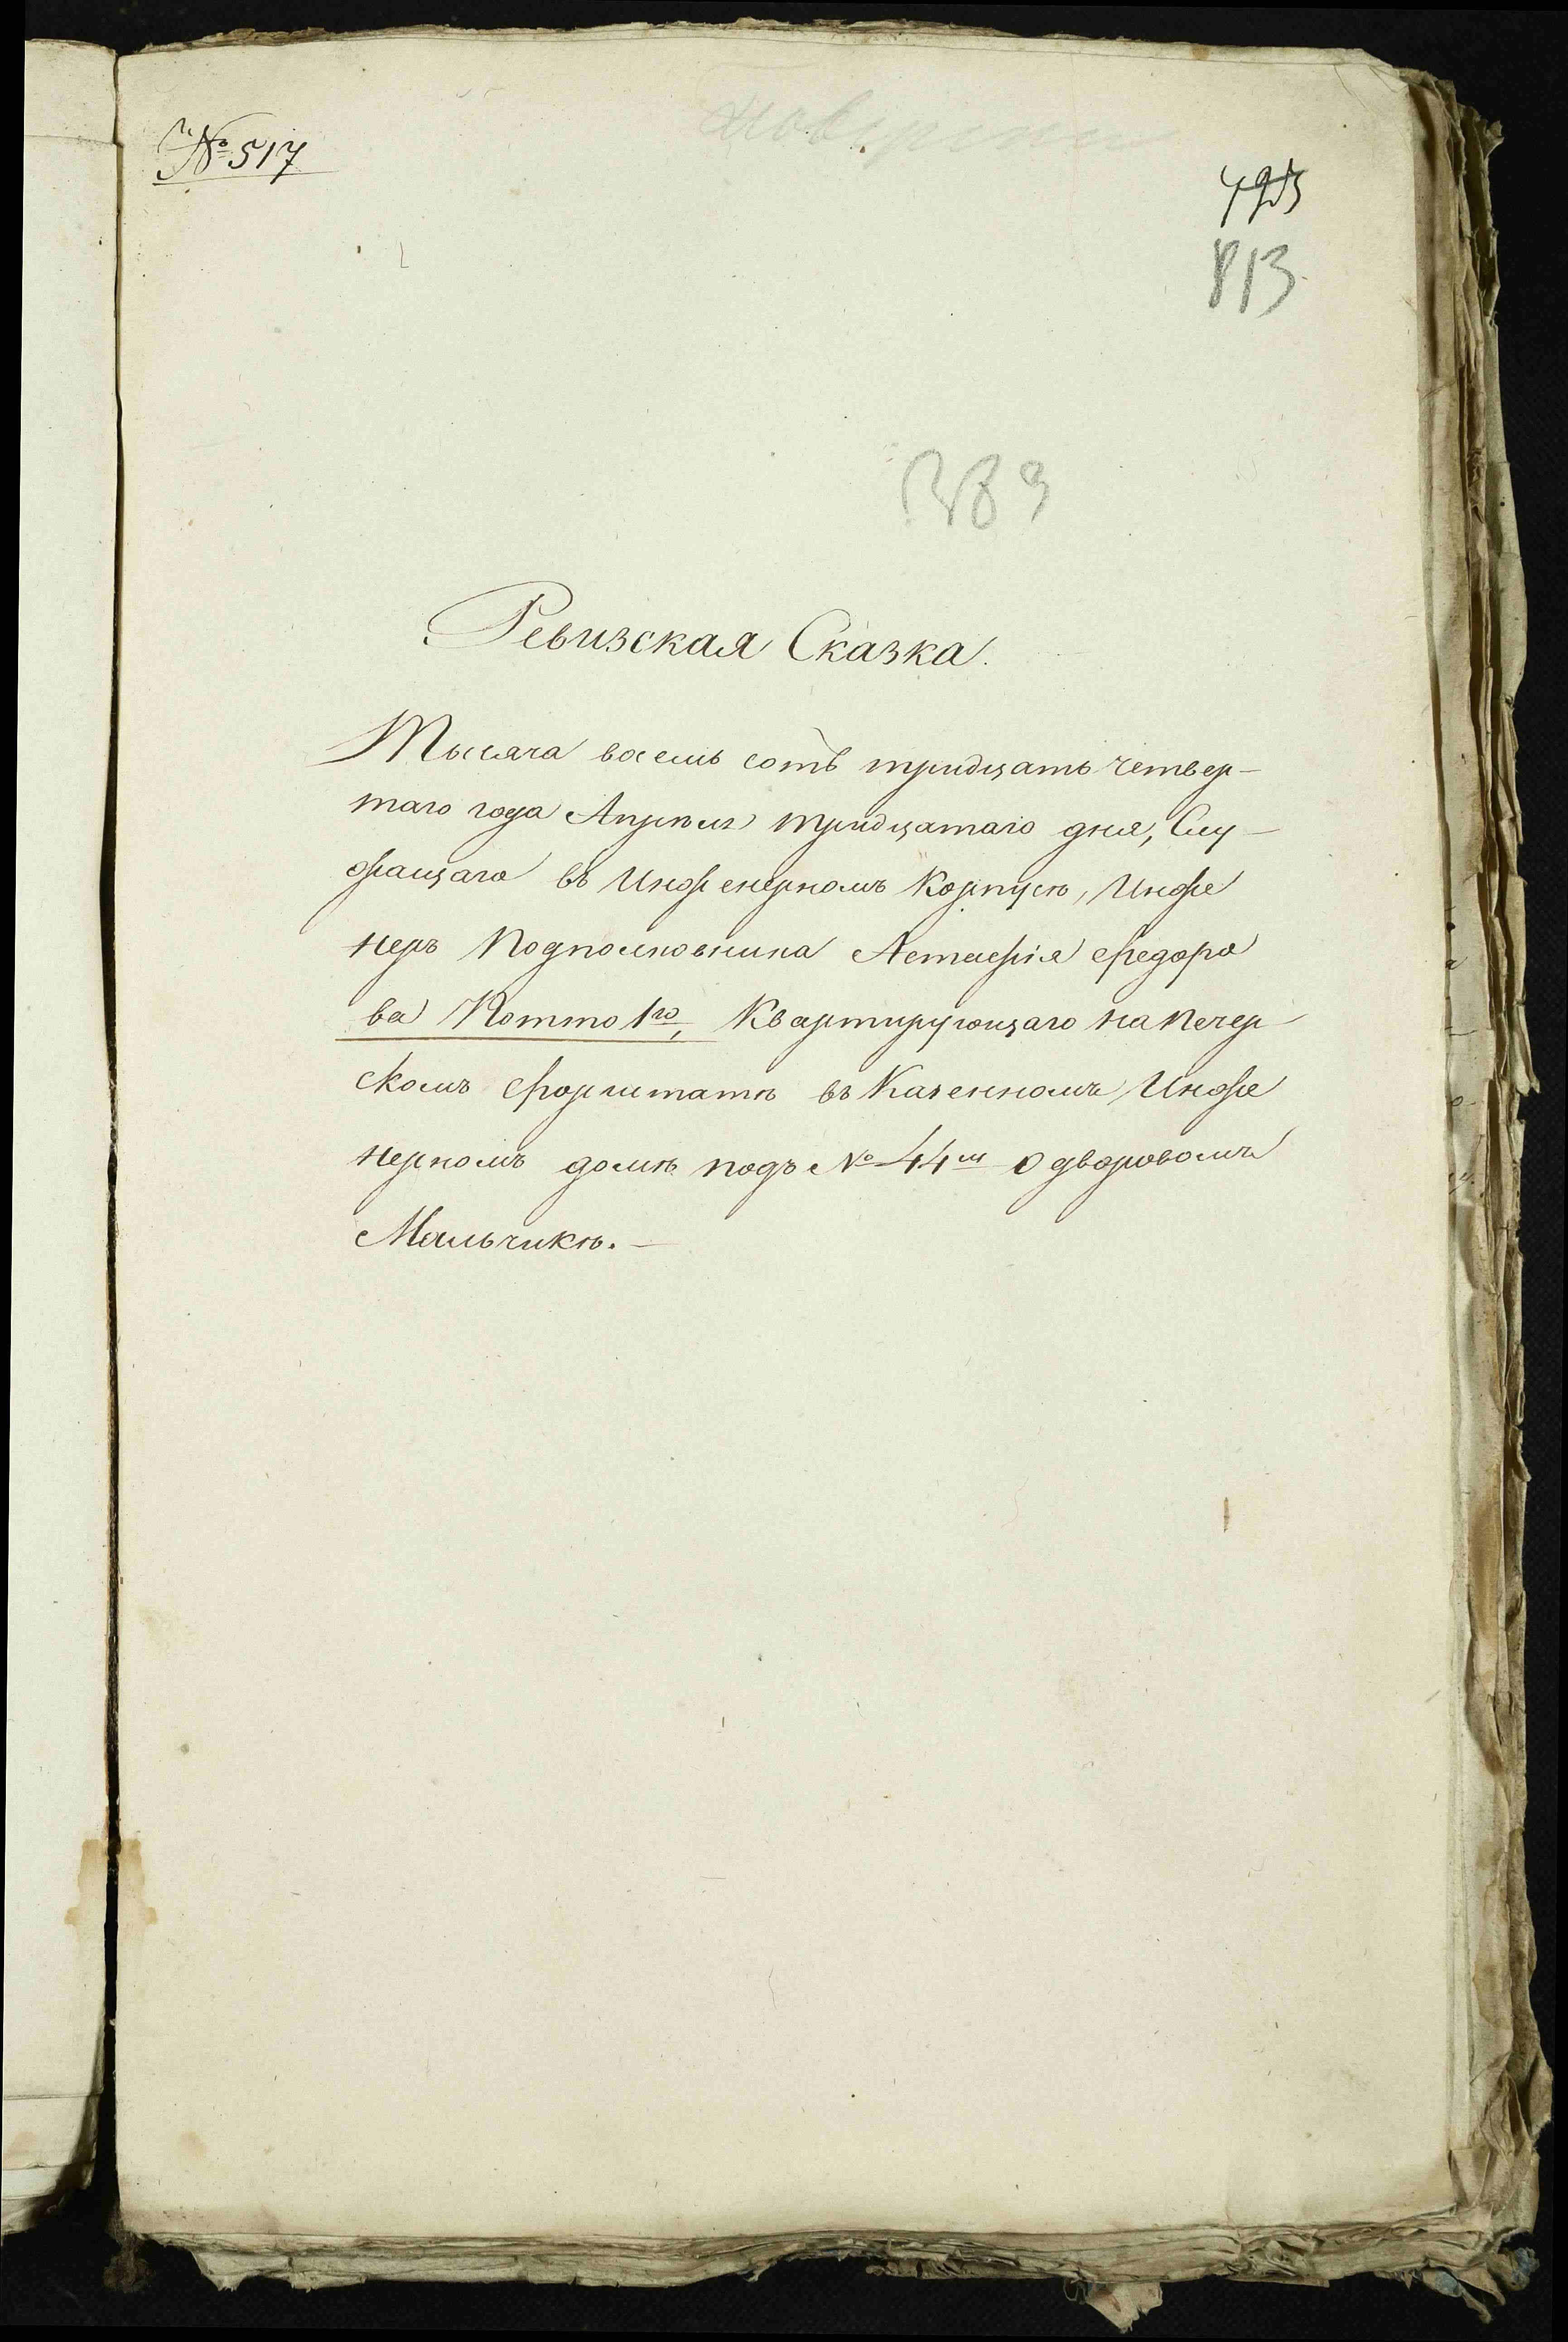 № 517
813
389
Ревизская Сказка.
Тысяча восемь сотъ тридцать четвер-
таго года Апрѣля тридцатаго дня, Слу-
жащаго въ Инженерномъ Корпусѣ, Инже
неръ Подполковника Астафія Федоро
ва Потто 1го, Квартирующаго на Печер
скомъ Форштатѣ въ Казенномъ Инже
нерномъ домѣ подъ № 44м О дворовомъ
Мальчикѣ.—